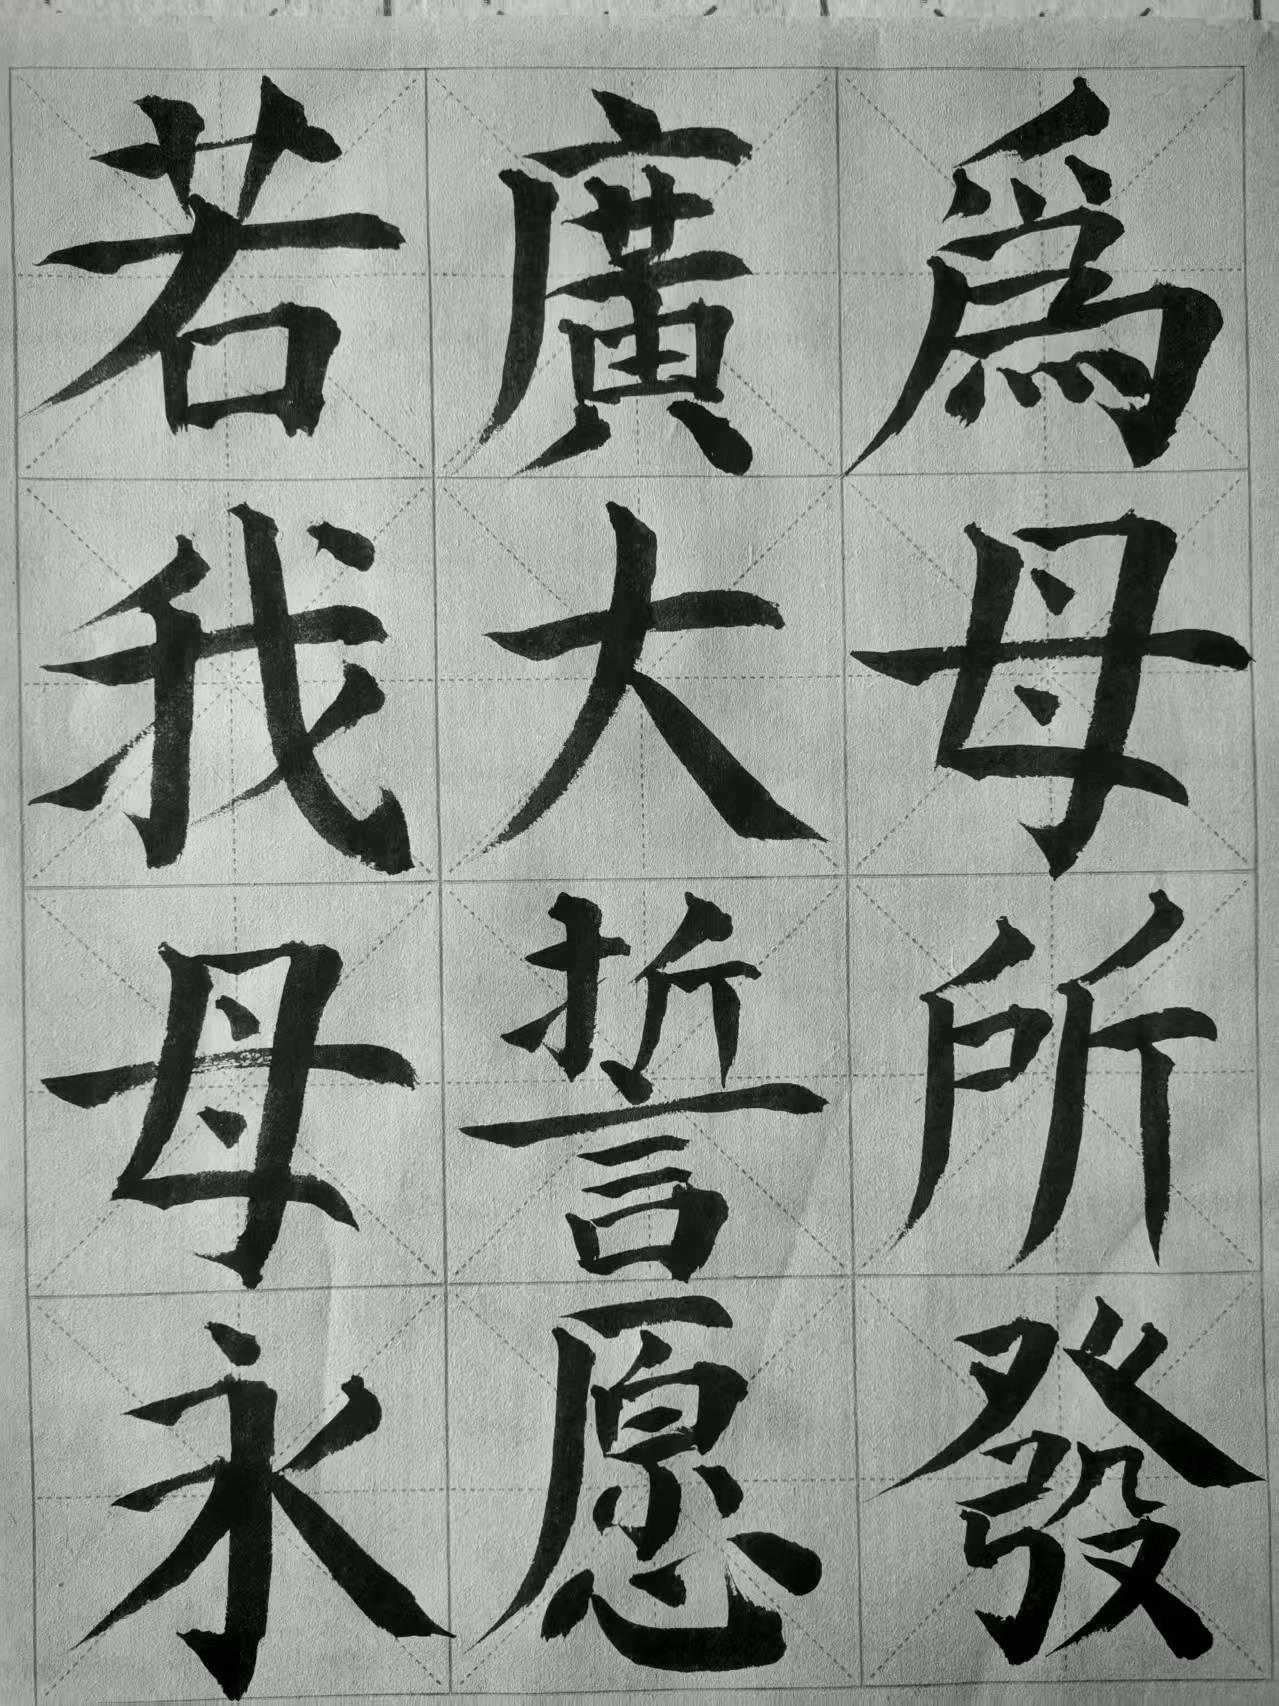 為母所發
廣大誓愿
若我母永